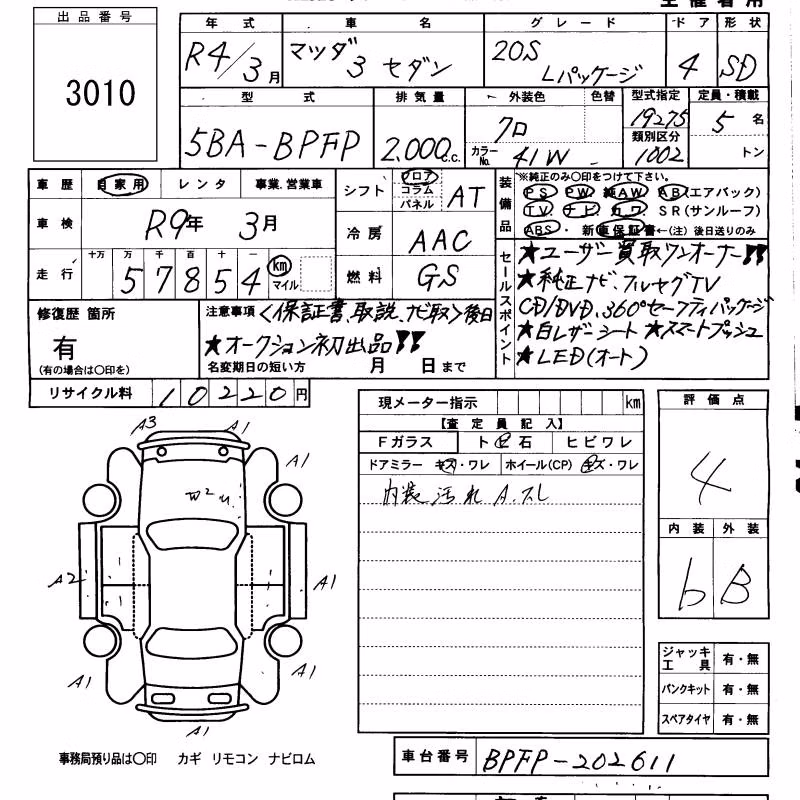 出品番号
3010
年式 車名 グレード ドア 形状
R4/3月 マツダ3 セダン 20S Lパッケージ 4 SD
型式 排気量 外装色 色替 型式指定 定員・積載
5BA-BPFP 2,000c.c. クロ 19275 5名
カラーNo. 41W 類別区分 1002 トン
車歴 自家用 レンタ 事業.営業車
車検 R9年 3月
走行 十万 万 千 百 十 一
57854 km マイル
シフト フロア コラム パネル AT
冷房 AAC
燃料 GS
装備品 ※純正のみ〇印をつけて下さい。
PS PW 純AW AB(エアバック)
TV. ナビ. カワ. SR(サンルーフ)
ABS・新車保証書←(注)後日送りのみ
セールスポイント
★ユーザー買取ワンオーナー!!
★純正ナビ、フルセグTV
CD/DVD、360°セーフティパッケージ
★白レザーシート ★スマートプッシュ
★LED(オート)
修復歴 箇所
有
(有の場合は〇印を)
注意事項 <保証書、取説、ナビ取>後日
★オークション初出品!!
名変期日の短い方 月 日まで
リサイクル料 10220円
現メーター指示 km
【査定員記入】
Fガラス トビ石 ヒビワレ
ドアミラー キズ・ワレ ホイール(CP) キズ・ワレ
内装汚れ A.スレ
評価点
4
内装 外装
b B
ジャッキ工具 有・無
パンクキット 有・無
スペアタイヤ 有・無
A3 A1
A1
W2 U
A2 A1
A1 A1
A1
事務局預り品は〇印 カギ リモコン ナビロム
車台番号 BPFP-202611